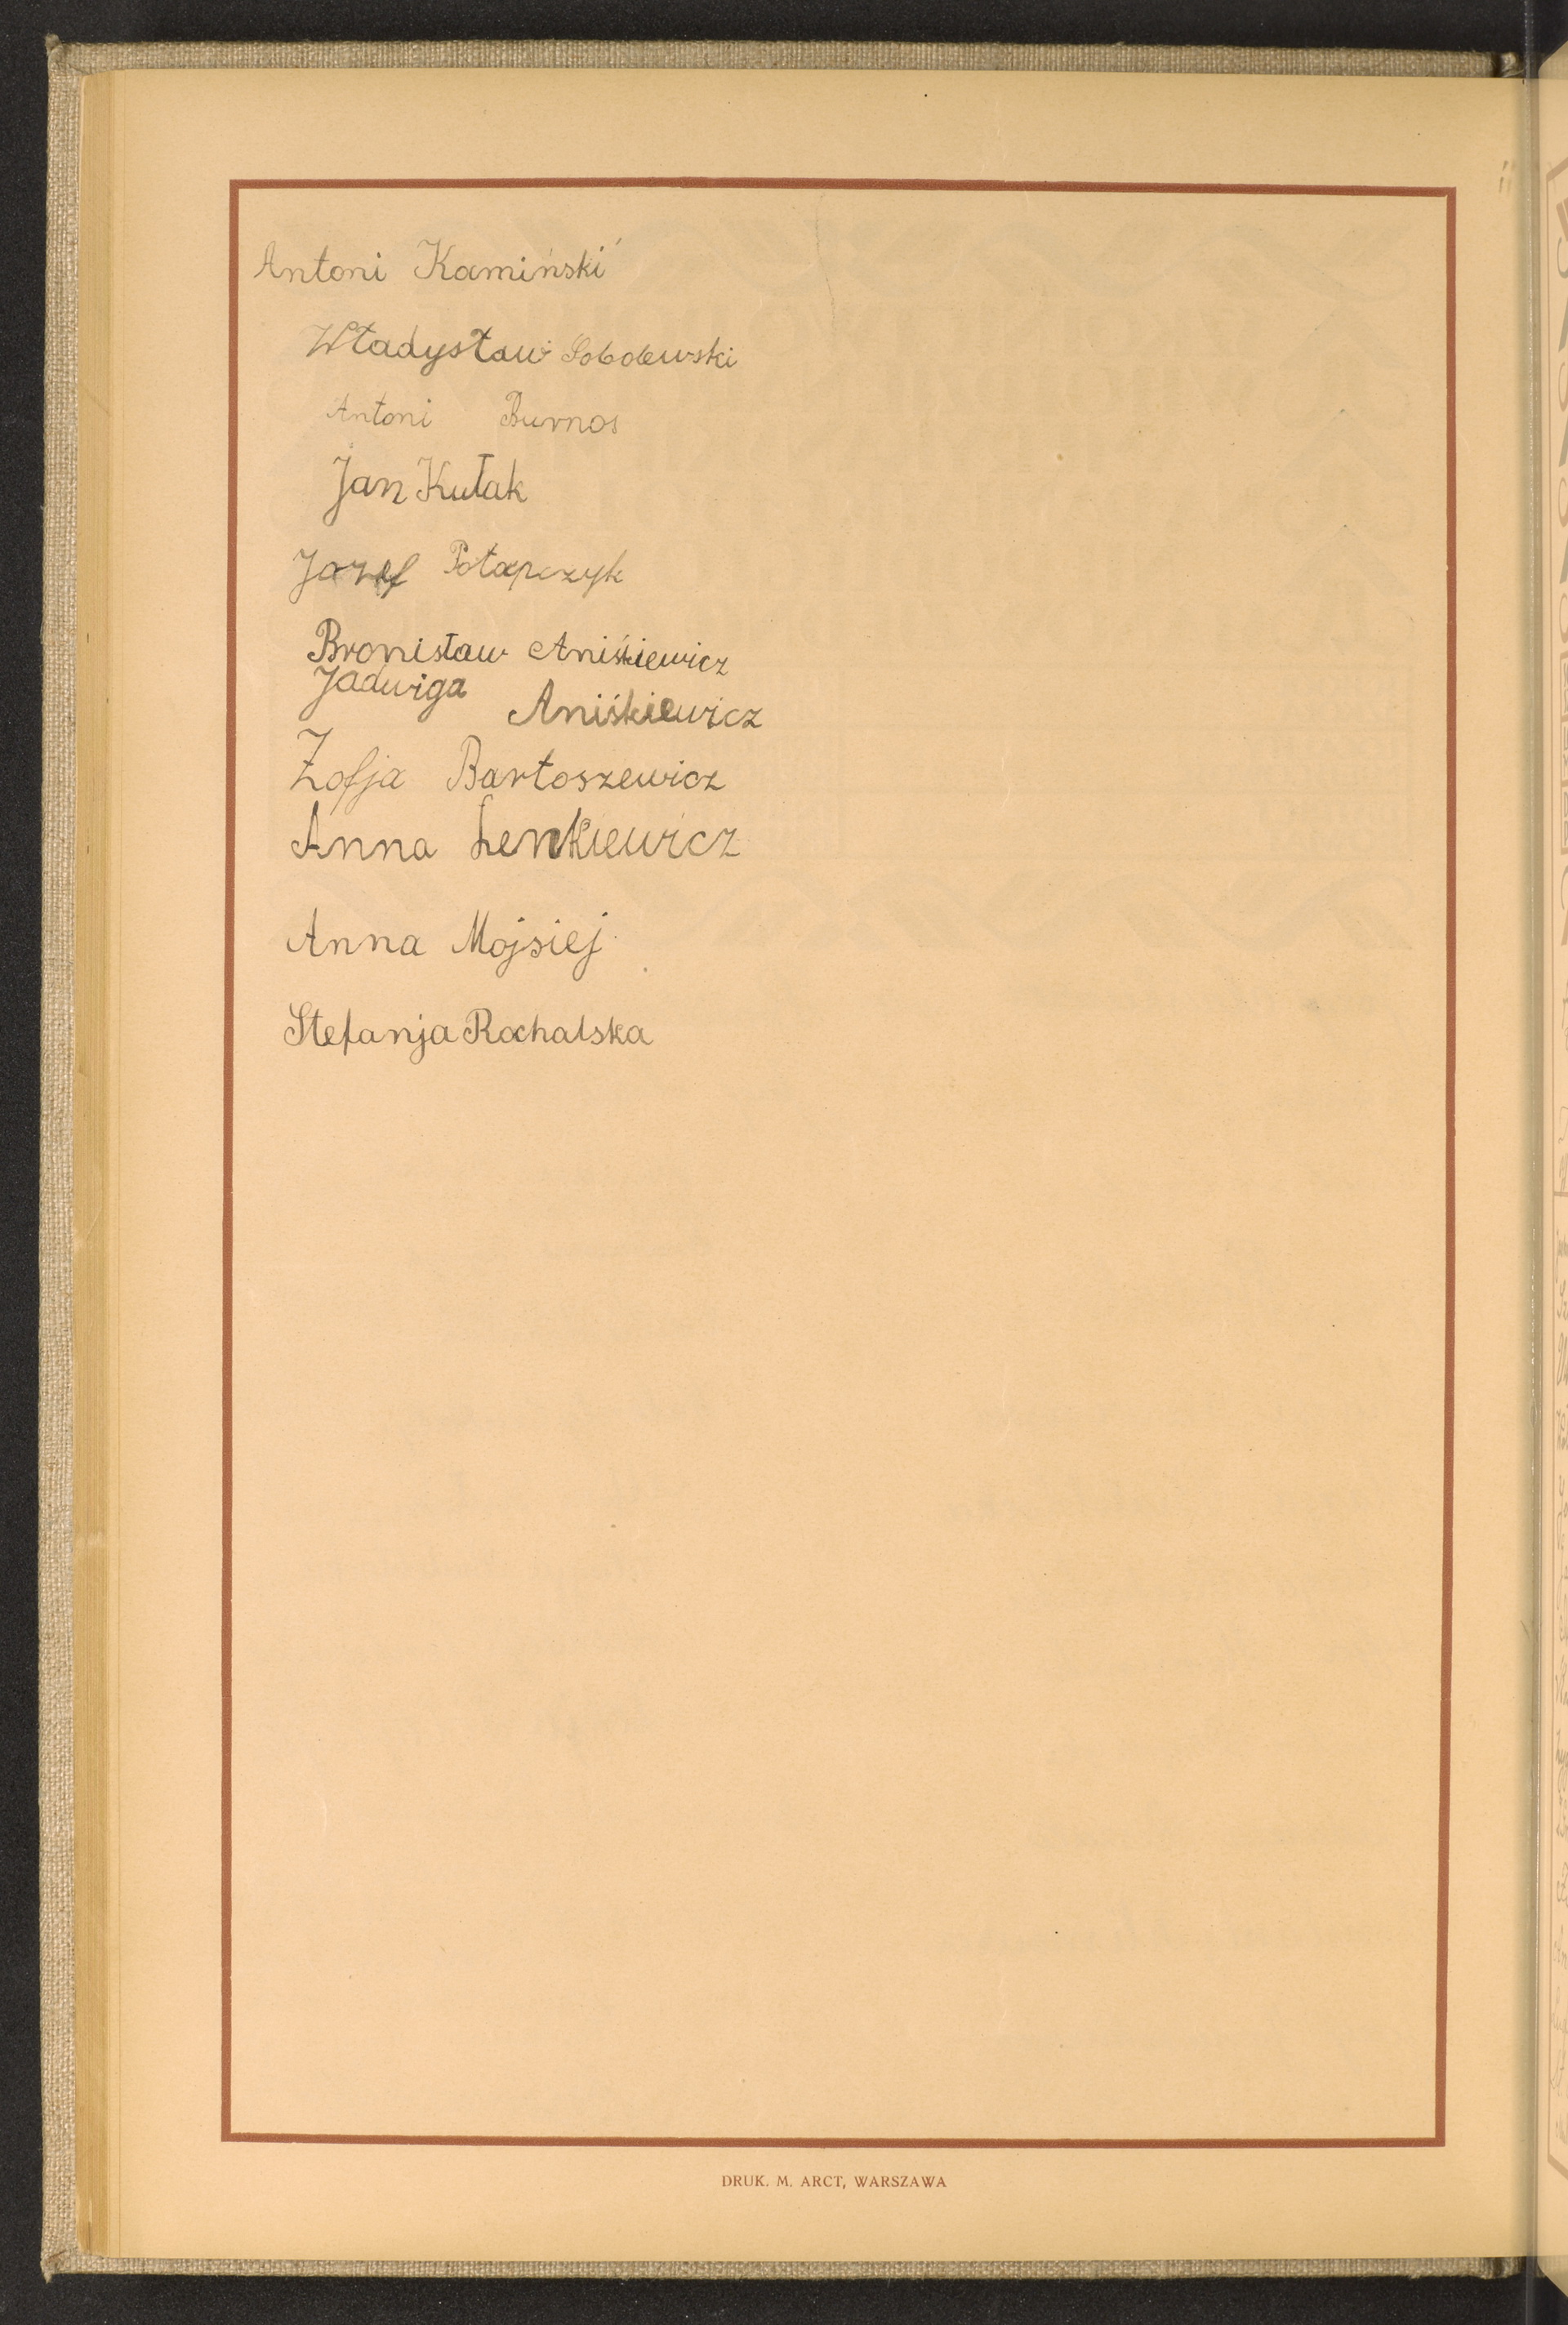 Antoni Kamiński
Władysław Sobolewski
Antoni Burnos
Jan Kułak
Józef Potapczyk
Bronisław Aniśkiewicz
Jadwiga Aniśkiewicz
Zofja Bartoszewicz
Anna Lenkiewicz
Anna Mojsiej
Stefanja Rochalska
DRUK. M. ARCT, WARSZAWA